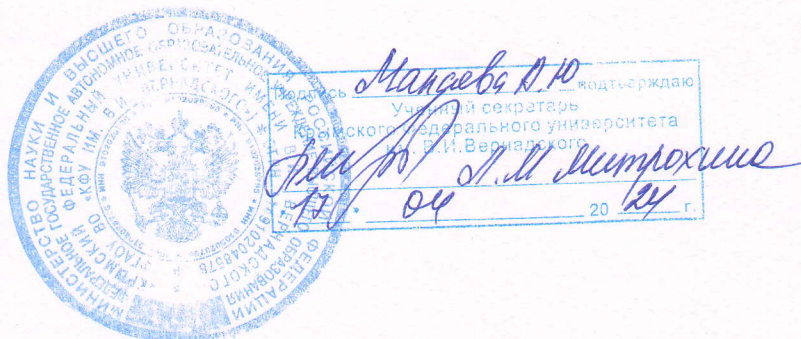 МИНИСТЕРСТВО НАУКИ И ВЫСШЕГО ОБРАЗОВАНИЯ РОССИЙСКОЙ ФЕДЕРАЦИИ
ФЕДЕРАЛЬНОЕ ГОСУДАРСТВЕННОЕ АВТОНОМНОЕ ОБРАЗОВАТЕЛЬНОЕ УЧРЕЖДЕНИЕ ВЫСШЕГО ОБРАЗОВАНИЯ
«КРЫМСКИЙ ФЕДЕРАЛЬНЫЙ УНИВЕРСИТЕТ ИМЕНИ В.И. ВЕРНАДСКОГО»
ФГАОУ ВО «КФУ ИМ. В.И. ВЕРНАДСКОГО»
9102048578
Подпись подтверждаю
Ученый секретарь
Крымского федерального университета
им. В.И.Вернадского
Л.М Митрохина
17 04 20 24 г.